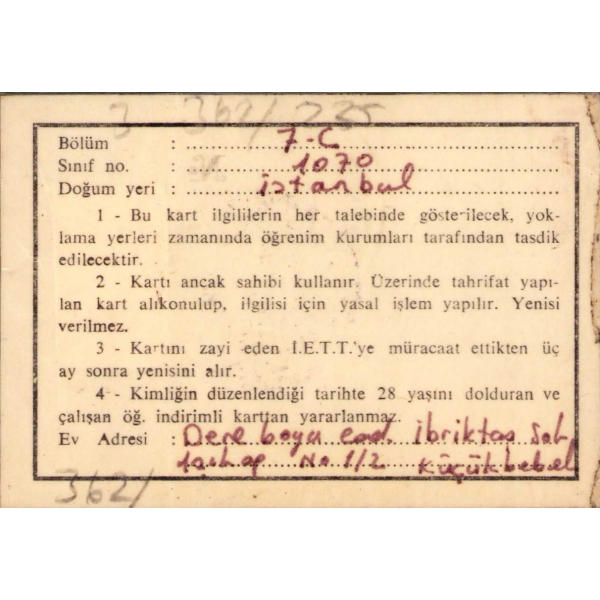 3 362/235
Bölüm : 7-C
Sınıf no. : 1070
Doğum yeri : istanbul
1 - Bu kart ilgililerin her talebinde gösterilecek, yok-
lama yerleri zamanında öğrenim kurumları tarafından tasdik
edilecektir.
2 - Kartı ancak sahibi kullanır. Üzerinde tahrifat yapı-
lan kart alıkonulup, ilgilisi için yasal işlem yapılır. Yenisi
verilmez.
3 - Kartını zayi eden İ.E.T.T.'ye müracaat ettikten üç
ay sonra yenisini alır.
4 - Kimliğin düzenlendiği tarihte 28 yaşını dolduran ve
çalışan öğ. indirimli karttan yararlanmaz.
Ev Adresi : Dere boyu cad. ibriktar Sok
No 1/2 küçükbebek
362/